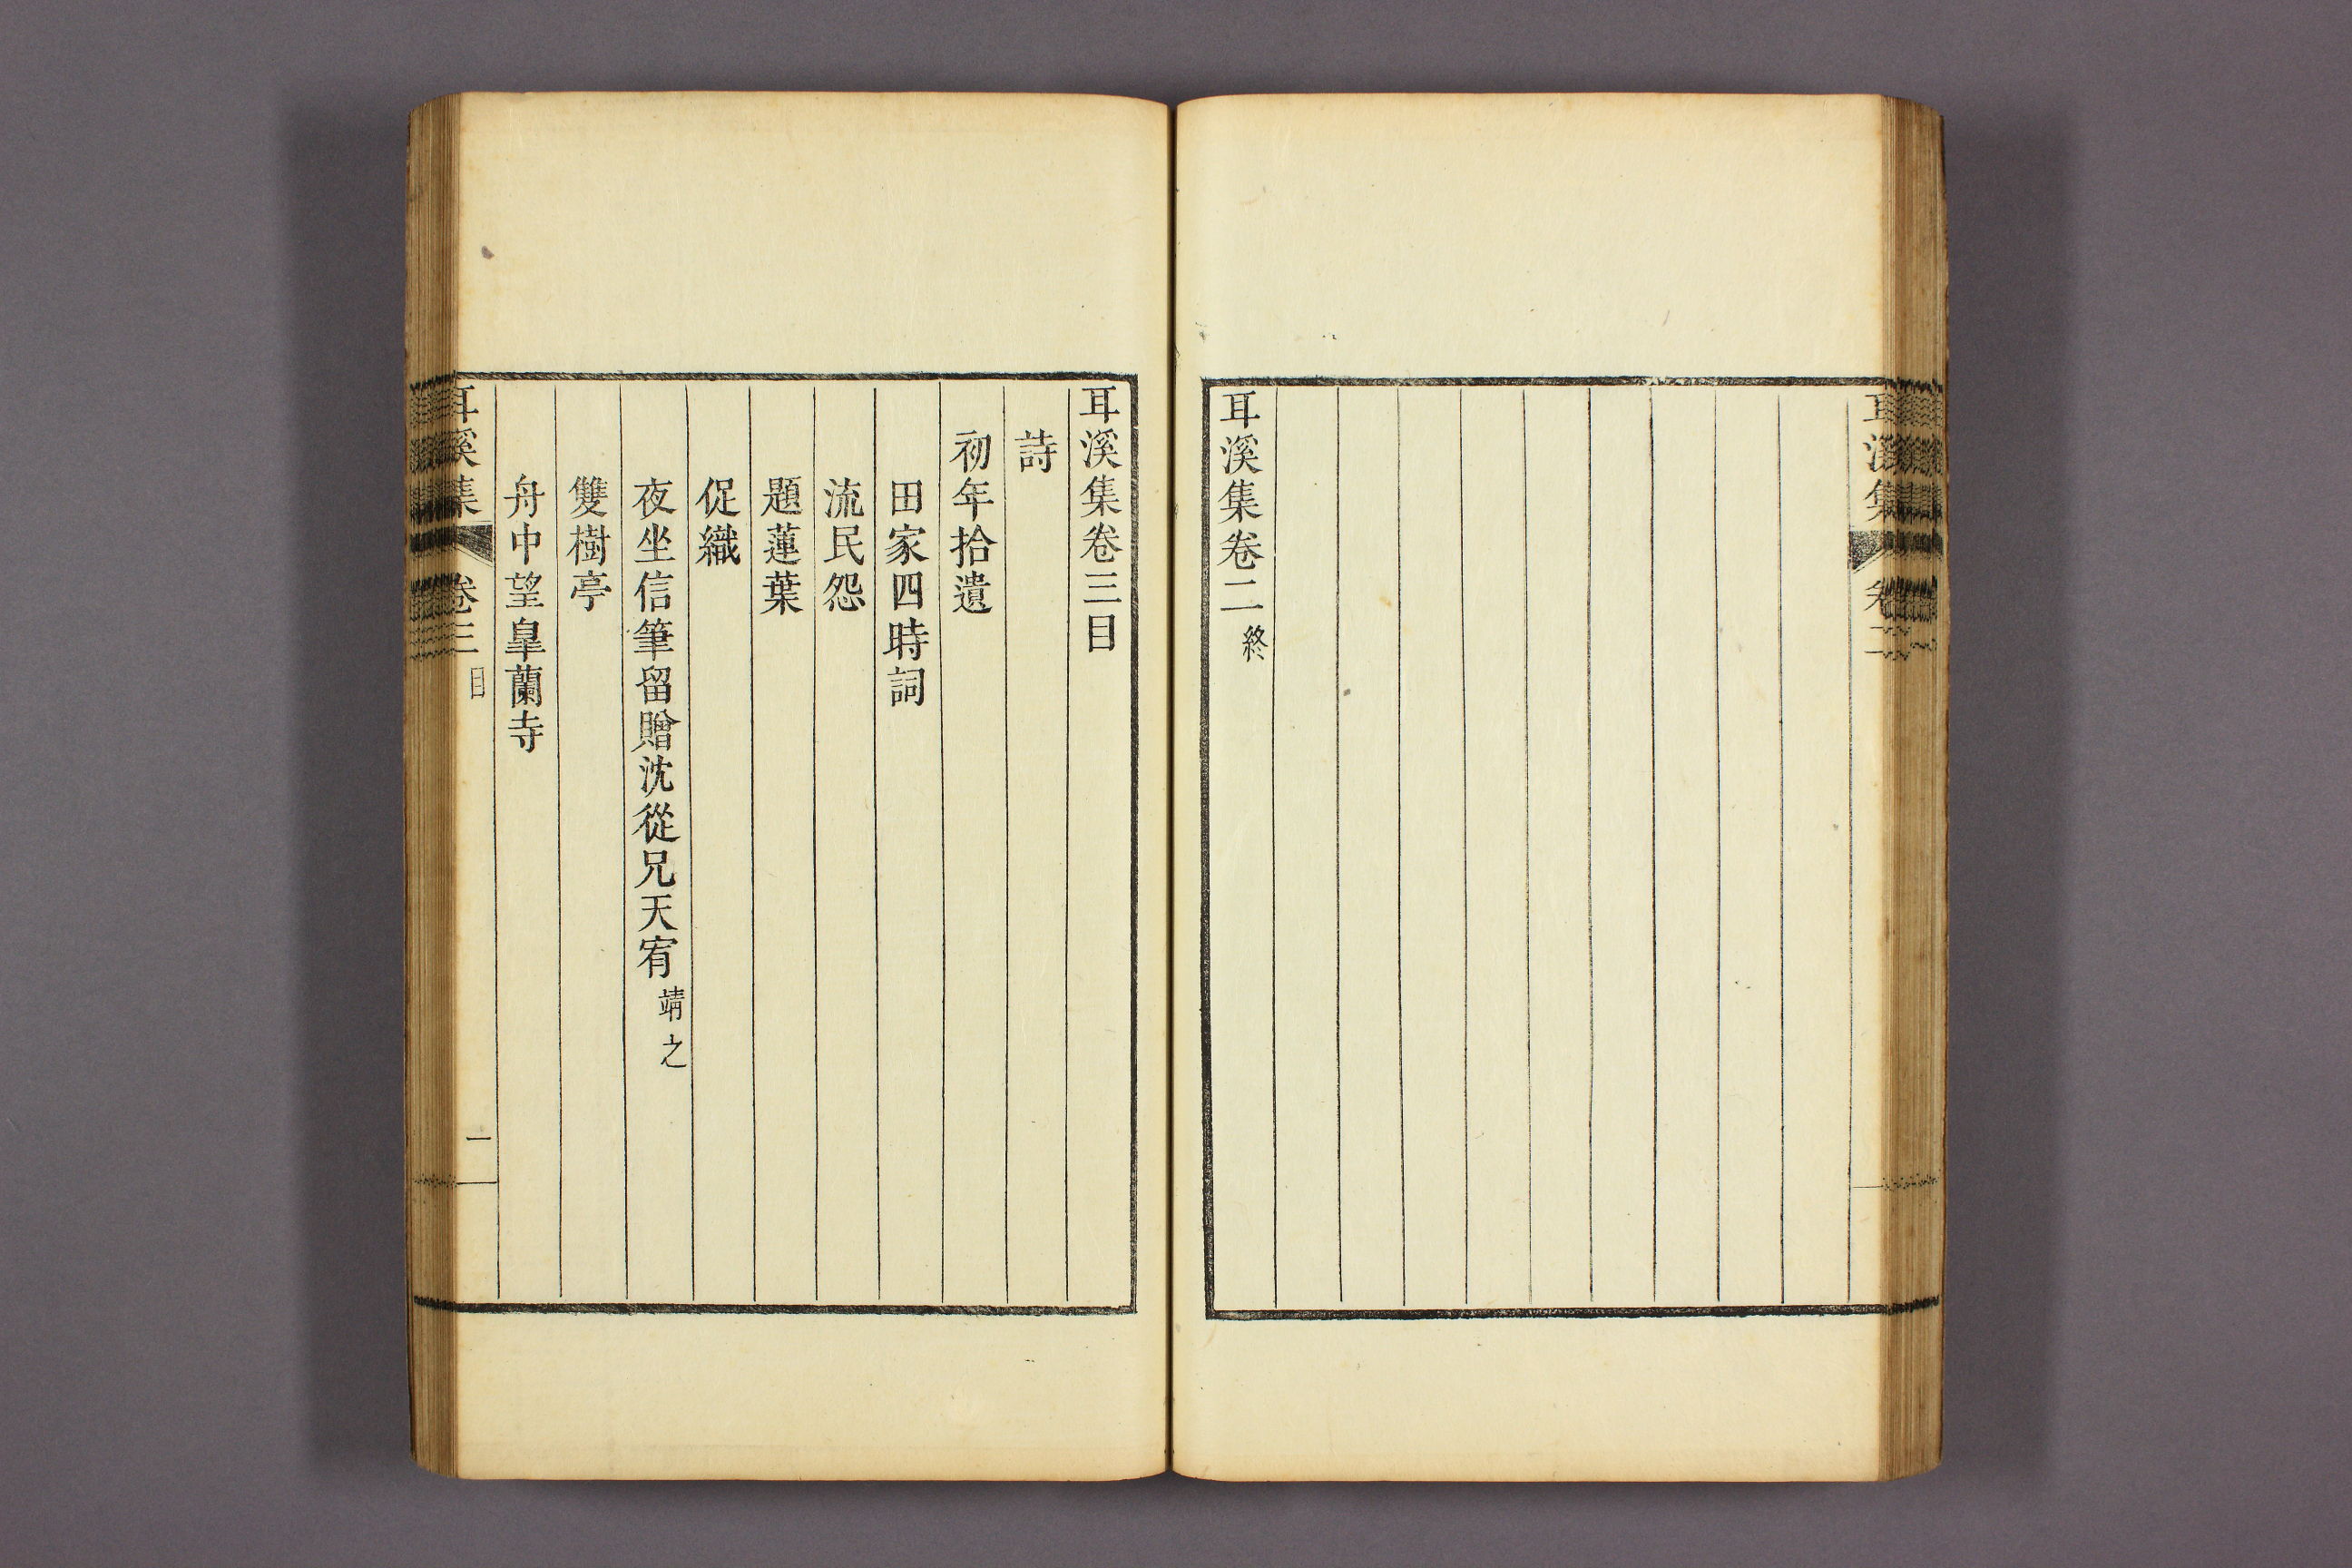 耳溪集 卷二
耳溪集卷二終
耳溪集卷三目
詩
初年拾遺
田家四時詞
流民怨
題蓮葉
促織
夜坐信筆留贈沈從兄天宥靖之
雙樹亭
舟中望皐蘭寺
耳溪集 卷三 目 一